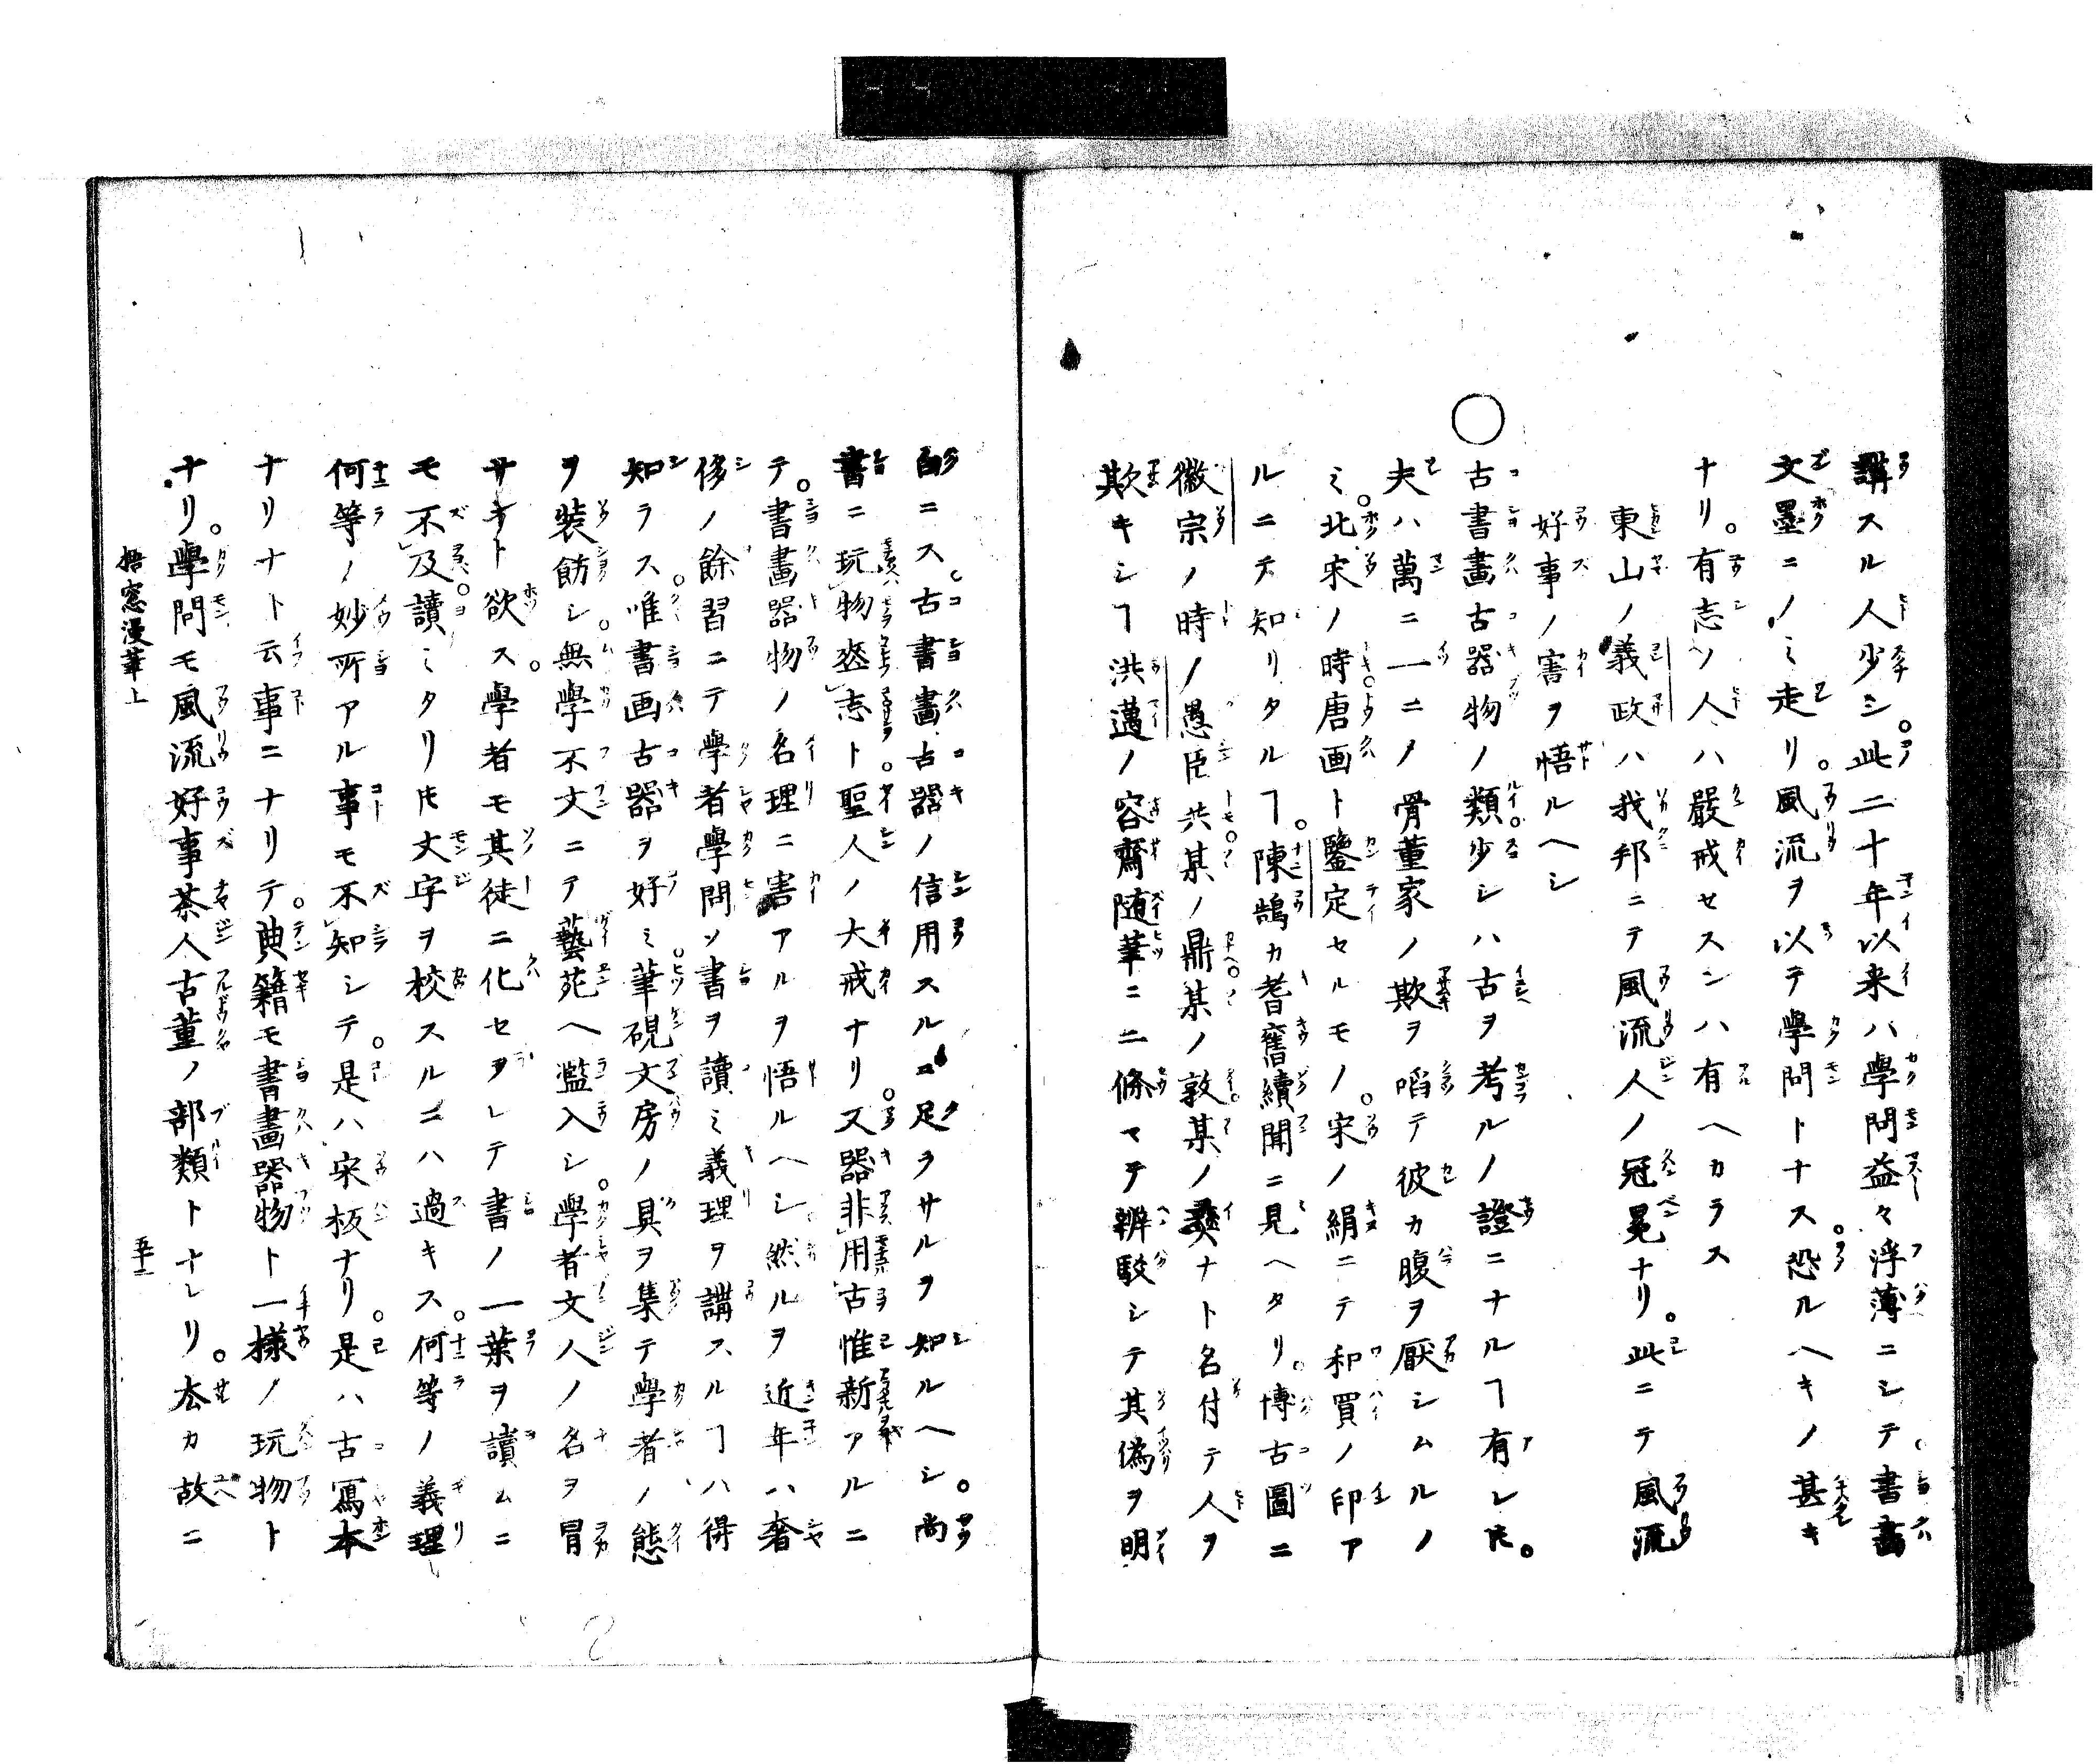 講スル人少シ。此二十年以来ハ學問益々浮薄ニシテ。書畵
文墨ニノミ走リ。風流ヲ以テ學問トナス。恐ルヘキノ甚キ
ナリ。有志ソ人ハ嚴戒セスンハ有ヘカラス
東山ノ義政ハ我邦ニテ風流人ノ冠冕ナリ。此ニテ風流
好事ノ害ヲ悟ルヘシ
〇古書畫古器物ノ類。少シハ古ヲ考ルノ證ニナルヿ有レ𪜈。
夫ハ萬ニ一ニノ骨董家ノ欺ヲ㗖テ彼カ腹ヲ厭シムルノ
ミ。北宋ノ時唐画ト鑒定セルモノ。宋ノ絹ニテ和買ノ印ア
ルニテ知リタルヿ。陳鵠カ耆舊續聞ニ見ヘタリ。博古圖ニ
徽宗ノ時ノ愚臣共某ノ鼎某ノ敦某ノ彝ナト名付テ人ヲ
欺キシヿ洪邁ノ容齋随筆ニ二條マテ辨駁シテ其偽ヲ明
白ニス。古書畵古器ノ信用スルニ足ラサルヲ知ルヘシ。尚
書ニ玩物喪志ト聖人ノ大戒ナリ。又器非用古惟新アルニ
テ。書畵器物ノ名理ニ害アルヲ悟ルヘシ。然ルヲ近年ハ奢
侈ノ餘習ニテ學者學問ソ書ヲ讀ミ義理ヲ講スルヿハ得
知ラス。唯書画古器ヲ好ミ。筆硯文房ノ具ヲ集テ學者ノ態
ヲ裝飭シ。無學不文ニテ藝苑ヘ濫入シ。學者文人ノ名ヲ冒
サント欲ス。學者モ其徒ニ化セラレテ書ノ一葉ヲ讀ムニ
モ不及。讀ミタリ𪜈文字ヲ校スルニハ過キス。何等ノ義理
何等ノ妙所アル事モ不知シテ。是ハ宋板ナリ。是ハ古寫本
ナリナト云事ニナリテ。典籍モ書畵器物ト一様ノ玩物ト
ナリ。學問モ風流好事茶人古董ノ部類トナレリ。夲カ故ニ
梧窓漫筆上
五十二